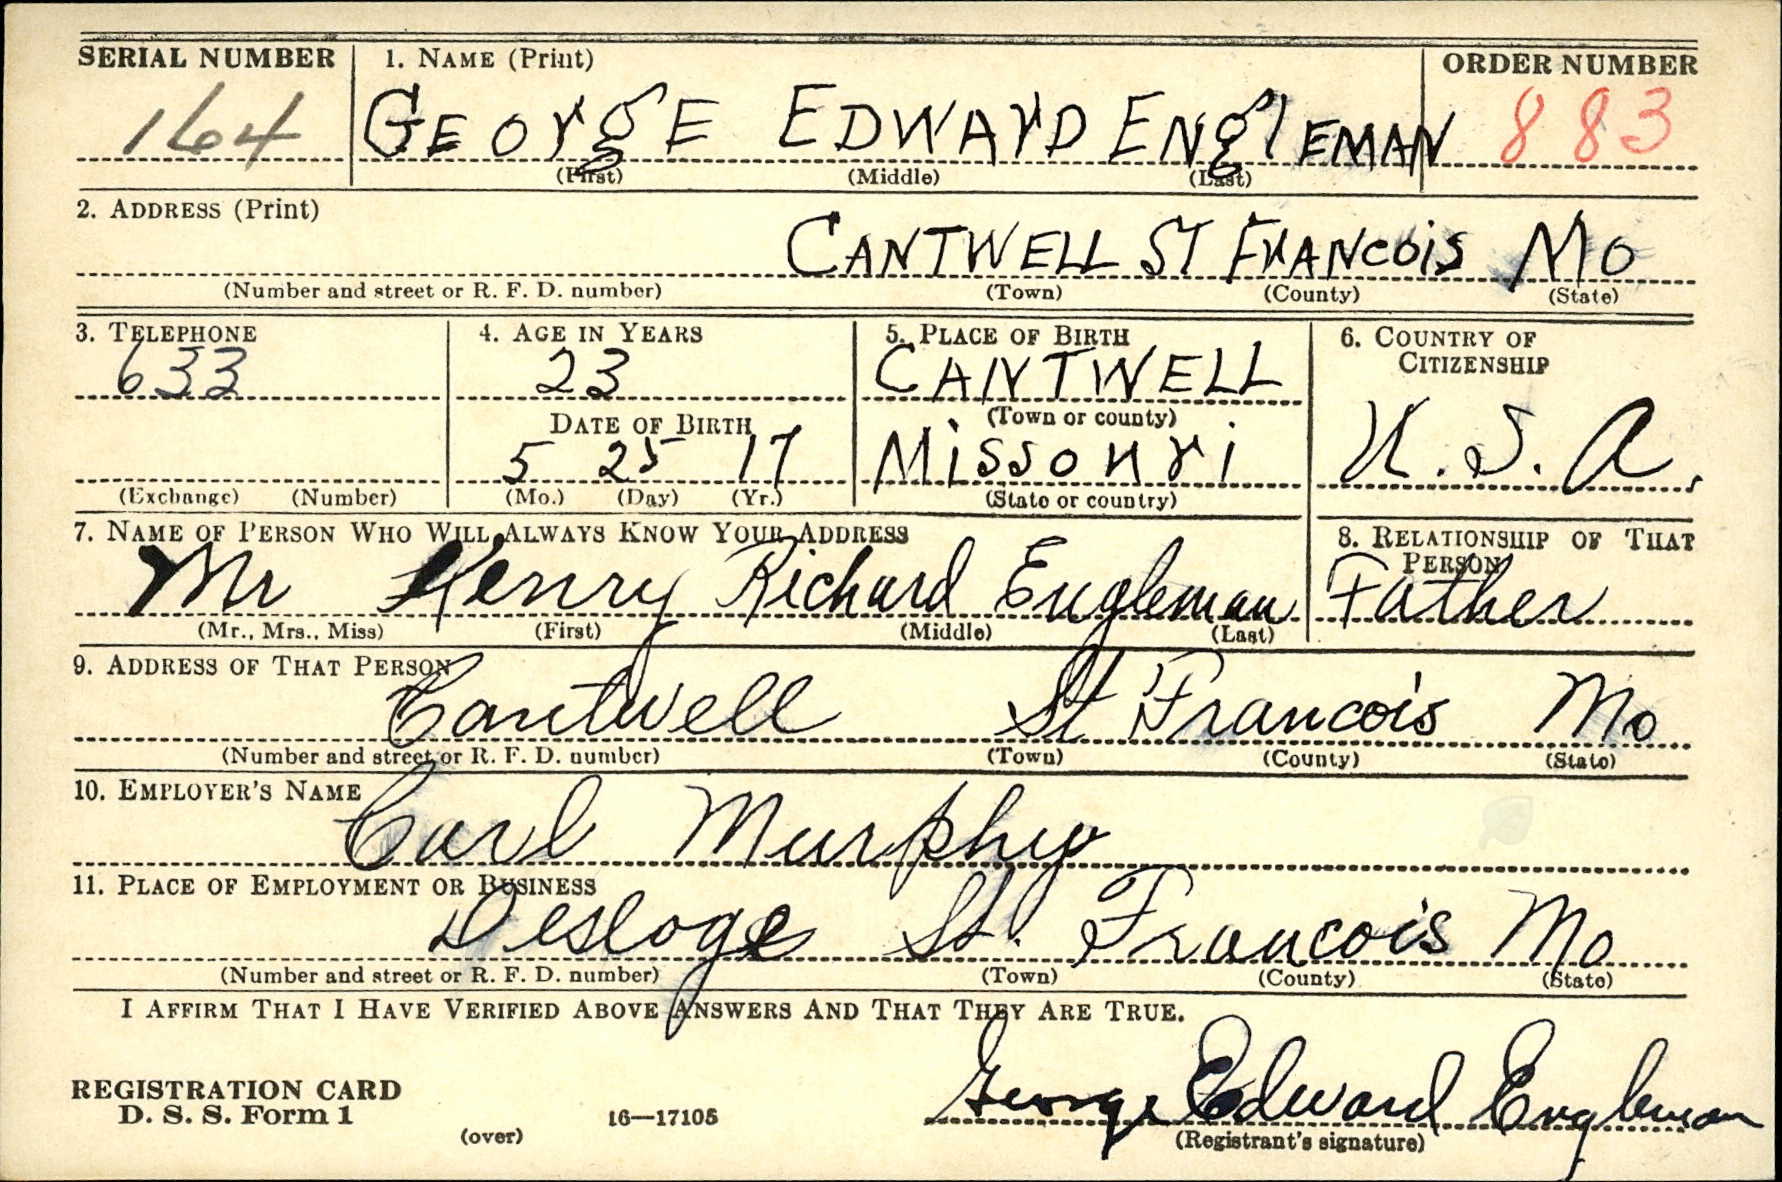 SERIAL NUMBER 1. NAME (Print) ORDER NUMBER
164 GEORGE EDWARD ENGLEMAN 883
(First) (Middle) (Last)
2. ADDRESS (Print)
CANTWELL ST FRANCOIS MO
(Number and street or R. F. D. number) (Town) (County) (State)
3. TELEPHONE 4. AGE IN YEARS 5. PLACE OF BIRTH 6. COUNTRY OF CITIZENSHIP
633 23 CANTWELL
DATE OF BIRTH (Town or county)
5 25 17 MISSOURI U.S.A.
(Exchange) (Number) (Mo.) (Day) (Yr.) (State or country)
7. NAME OF PERSON WHO WILL ALWAYS KNOW YOUR ADDRESS 8. RELATIONSHIP OF THAT PERSON
Mr Henry Richard Engleman Father
(Mr., Mrs., Miss) (First) (Middle) (Last)
9. ADDRESS OF THAT PERSON
Cantwell St Francois Mo
(Number and street or R. F. D. number) (Town) (County) (State)
10. EMPLOYER'S NAME
Carl Murphy
11. PLACE OF EMPLOYMENT OR BUSINESS
Desloge St. Francois Mo
(Number and street or R. F. D. number) (Town) (County) (State)
I AFFIRM THAT I HAVE VERIFIED ABOVE ANSWERS AND THAT THEY ARE TRUE.
George Edward Engleman
REGISTRATION CARD
D. S. S. Form 1 16—17105
(over) (Registrant's signature)